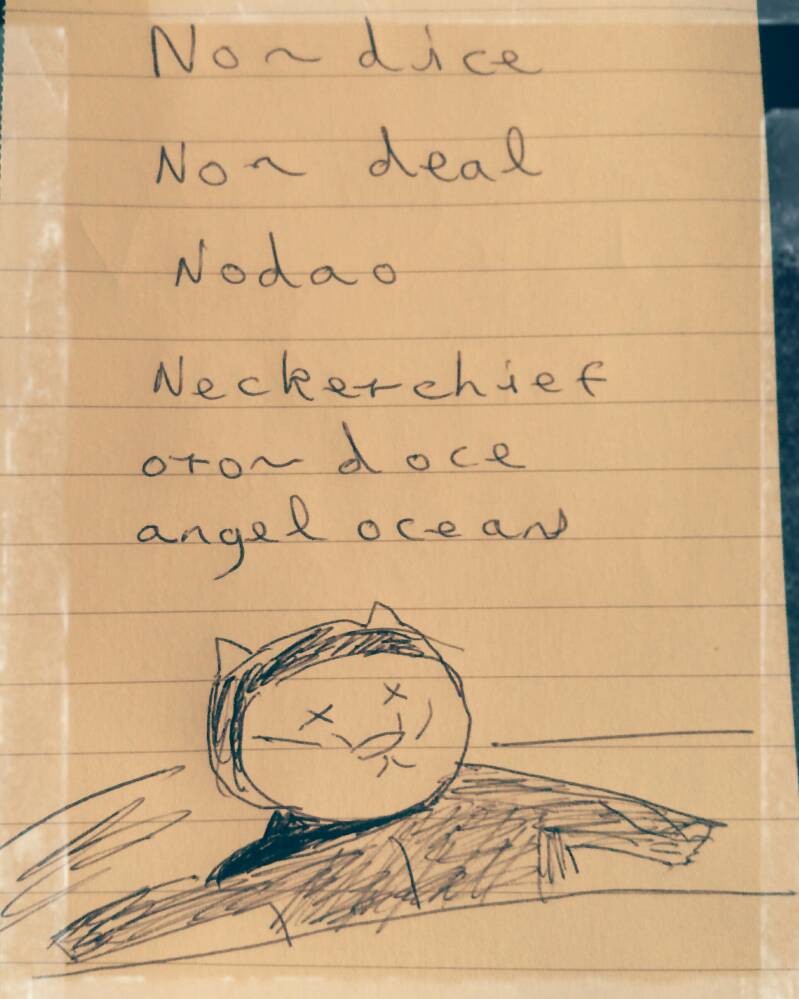 Non dice
Non deal
Nodao
Neckerchief
oron doce
angel ocean